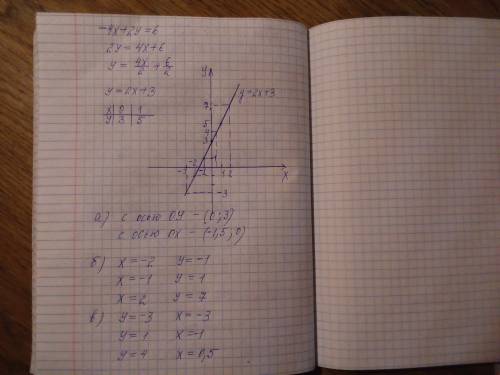 -4x+2y=6
2y=4x+6
y=4x/2+6/2
y=2x+3
x | 0 | 1
y | 3 | 5
y
y=2x+3
7
5
4
3
1
-3 -2 -1 1 2 x
-3
а) с осью OY - (0; 3)
с осью OX - (-1,5; 0)
б) x=-2 y=-1
x=-1 y=1
x=2 y=7
в) y=-3 x=-3
y=1 x=-1
y=4 x=0,5